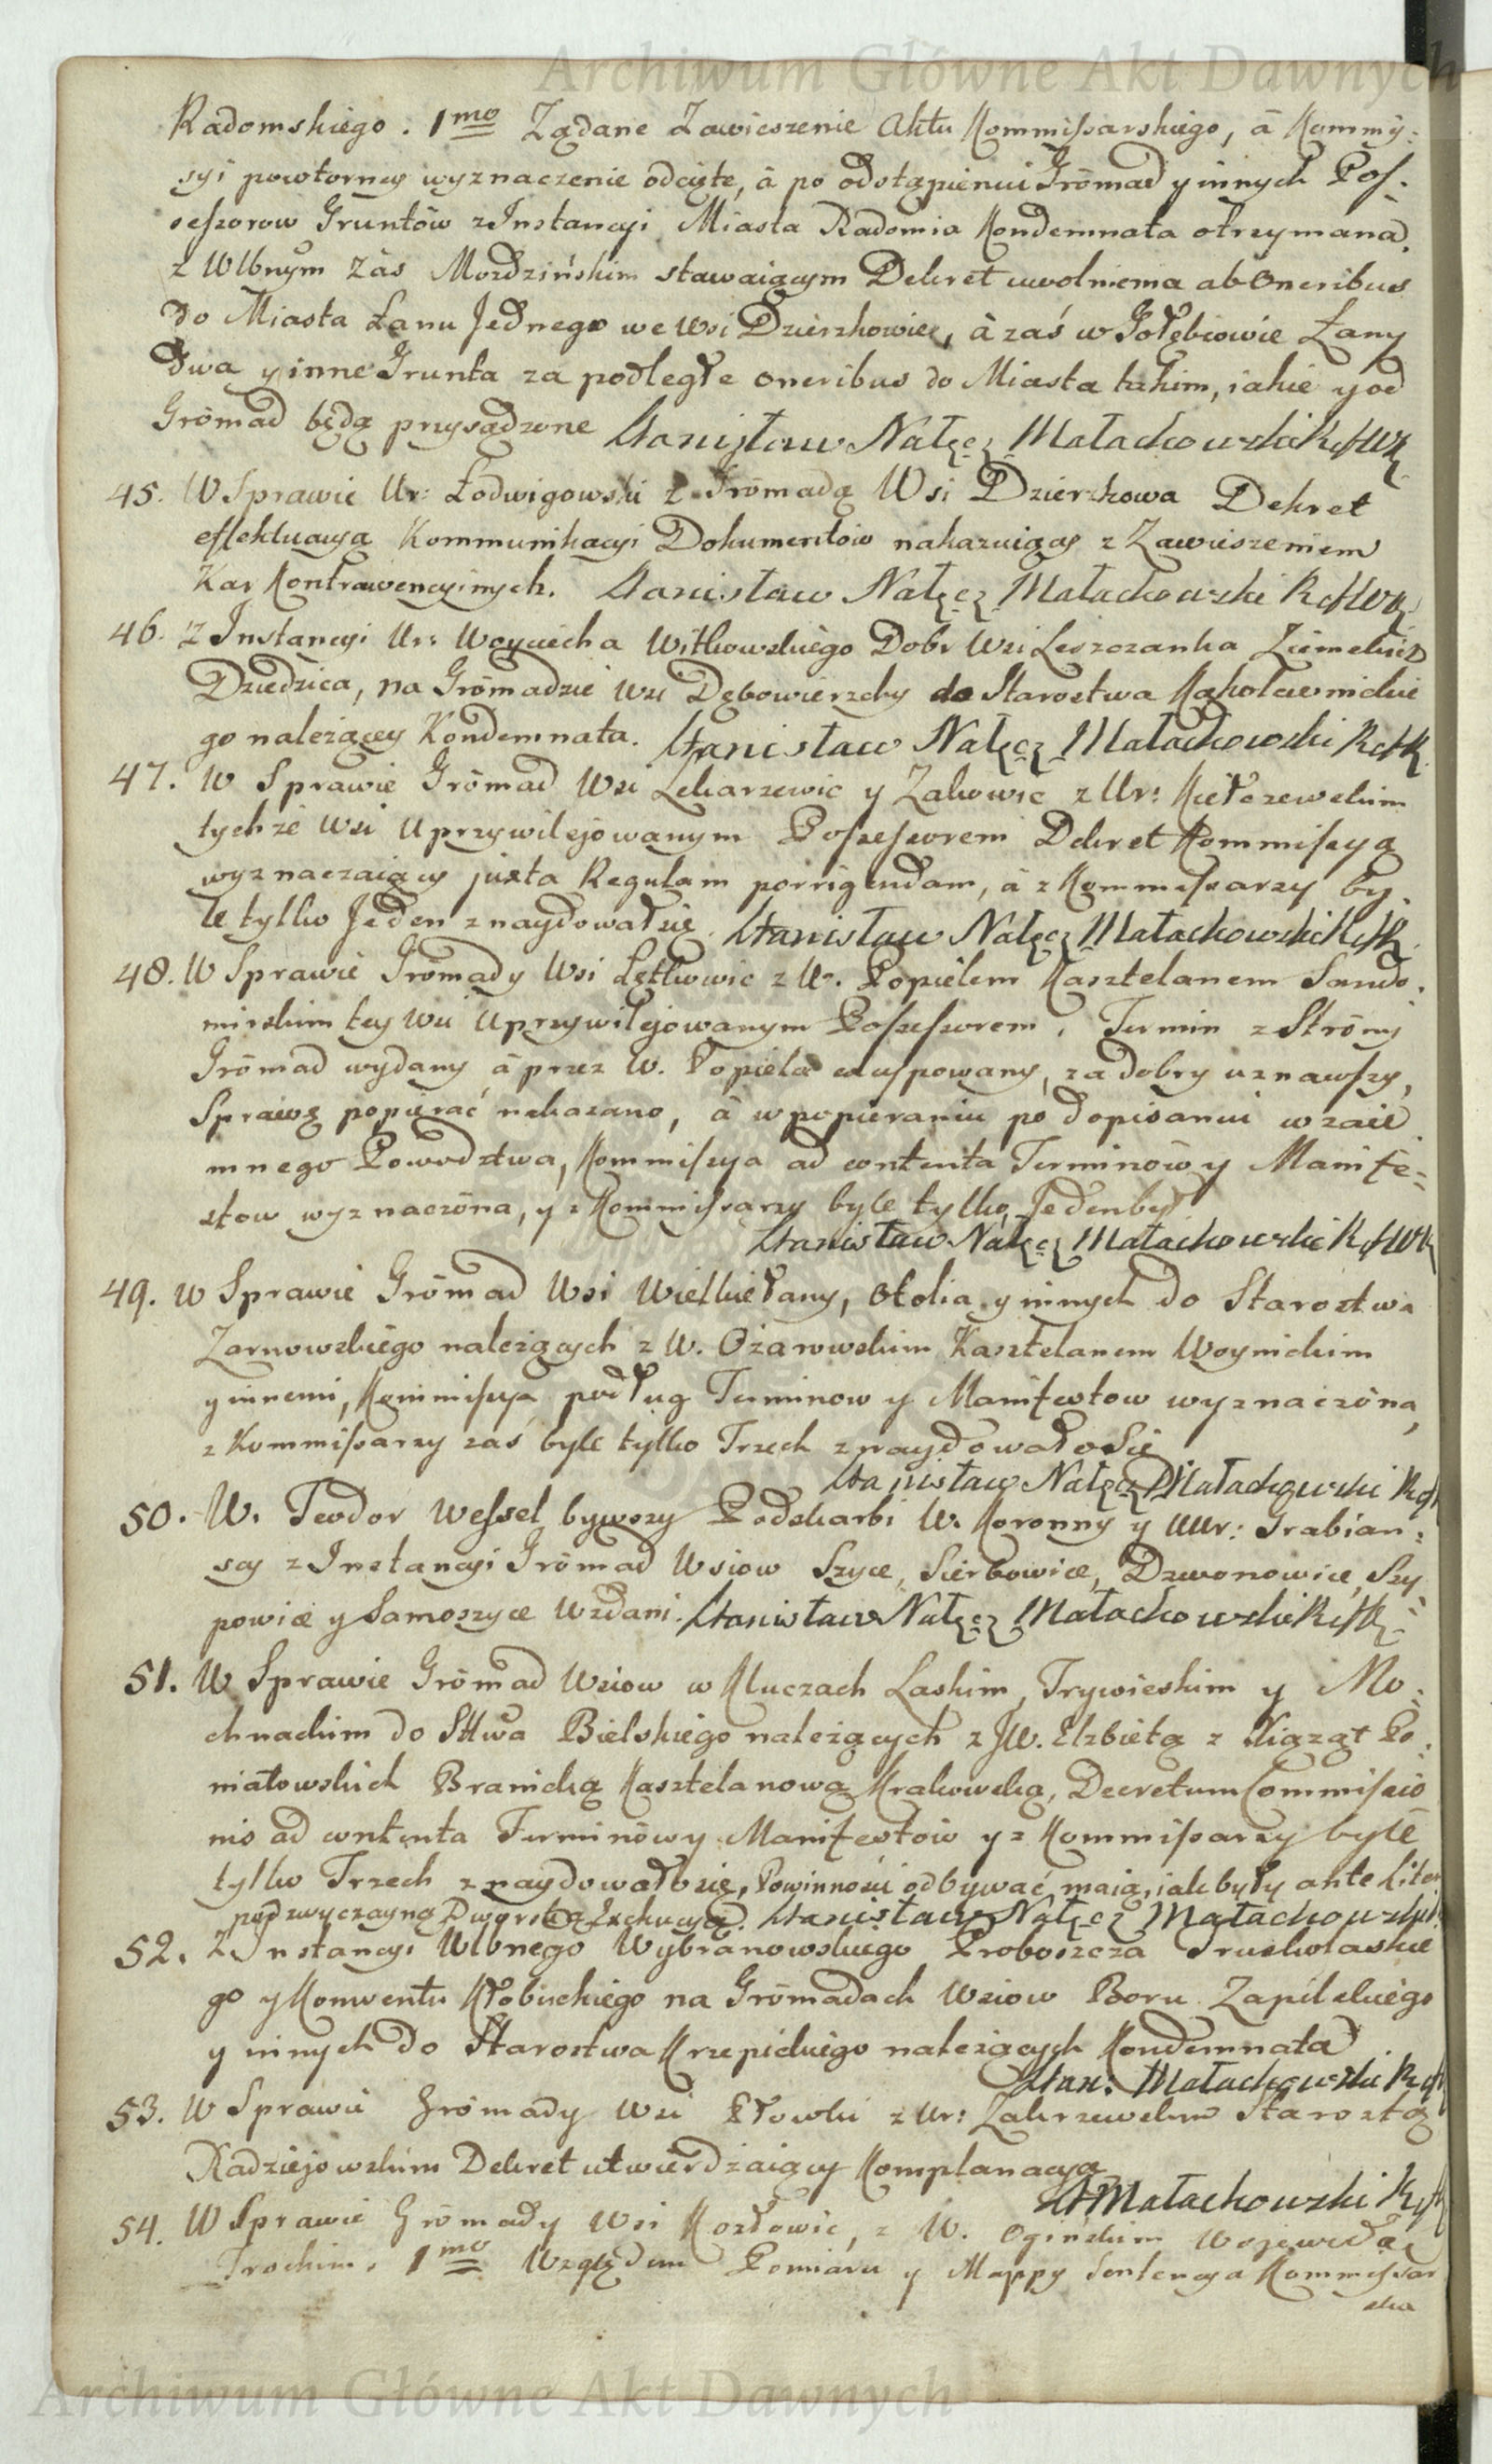 Archiwum Główne Akt Dawnych
Radomskiego. 1mo Żądane Zawieszenie Aktu Kommissarskiego, à Kommis-
syi powtorney wyznaczenie odcięte, à po odstąpieniu Gromad y innych Pos-
sessorow Gruntów z Instancyi Miasta Radomia Kondemnata otrzymana.
z Wlbnym zàs Mozdzińskim stawaiącym Dekret uwolnienia ab Oneribus
do Miasta Łanu Jednego we Wsi Dzierzkowie, à zaś w Gołębiowie Łany
Dwa y inne Grunta za podległe oneribus do Miasta takim, iakie y od
Gromad będą przysądzone Stanisław Nałęcz Małachowski RefWK
45. W Sprawie Ur: Łodwigowski z Gromadą Wsi Dzierzkowa Dekret
effektuacyą Kommunikacyi Dokumentów nakazuiący z Zawieszeniem
Kar Kontrawencyinych. Stanisław Nałęcz Małachowski RefWK
46. z Instancyi Ur: Woyciecha Witkowskiego Dobr Wsi Leszczanka Ziemskich
Dziedzica, na Gromadzie Wsi Dębowierzchy do Starostwa Kąkolewnickie
go należącey Kondemnata. Stanisław Nałęcz Małachowski RefK
47. W Sprawie Gromad Wsi Lekarzewic y Zakowic z Ur: Kiełczewskim
tychże Wsi Uprzywilejowanym Possessorem Dekret Kommissyą
wyznaczaiący juxta Regulam porrigendam, à z Kommissarzy by-
le tylko Jeden znaydował się. Stanisław Nałęcz Małachowski RefK
48. W Sprawie Gromady Wsi Lętkowic z W. Popielem Kasztelanem Sendo-
mirskim tey Wsi Uprzywilejowanym Possessorem. Termin z Strony
Gromad wydany à przez W. Popiela excypowany, za dobry uznawszy,
Sprawę popierać nakazano, à w popieraniu po dopisaniu wzaie
mnego Powodztwa, Kommissya ad contenta Terminów y Manife-
stow wyznaczona, y z Kommissarzy byle tylko Jeden był
Stanisław Nałęcz Małachowski RefWK
49. W Sprawie Gromad Wsi Wielkiełany, y innych do Starostwa
Zarnowskiego należących z W. Ożarowskim Kasztelanem Woynickim
y innemi, Kommissya podług Terminow y Manifestow wyznaczona,
z Kommissarzy zaś byle tylko Trzech znaydowało się
Stanisław Nałęcz Małachowski Ref
50. W. Teodor Wessel bywszy Podskarbi W. Koronny y UUr: Grabian-
scy z Instancyi Gromad Wsiow Szyce, Sierbowice, Dzwonowice, Szy
powice y Samoszyce Wzdani. Stanisław Nałęcz Małachowski RefK
51. W Sprawie Gromad Wsiow w Kluczach Laskim, Trywieskim y Mo-
chnackim do Sttwa Bielskiego należących z JW. Elzbietą z Xiąząt Po-
niatowskich Branicką Kasztelanową Krakowską, Decretum Commissio
nis ad contenta Terminów y Manifestow y z Kommissarzy byle
tylko Trzech znaydowało się, Powinności odbywać maią, iak były ante Litem
pod zwyczayną Dworską Exekucyą. Stanisław Nałęcz Małachowski
52. z Instancyi Wlbnego Wybranowskiego Proboszcza Truskolaskie
go y Konwentu Kłobuckiego na Gromadach Wsiow Boru Zapilskiego
y innych do Starostwa Krzepickiego należących Kondemnata
Stan: Małachowski Ref
53. W Sprawie Gromady Wsi Płowki z Ur: Zakrzewskim Starostą
Radziejowskim Dekret utwierdzaiący Komplanacyą
St Małachowski Ref
54. W Sprawie Gromady Wsi Kozłowic, z W. Oginskim Wojewodą
Trockim. 1mo Względem Pomiaru y Mappy Sentencya Kommissar
ska
Archiwum Główne Akt Dawnych